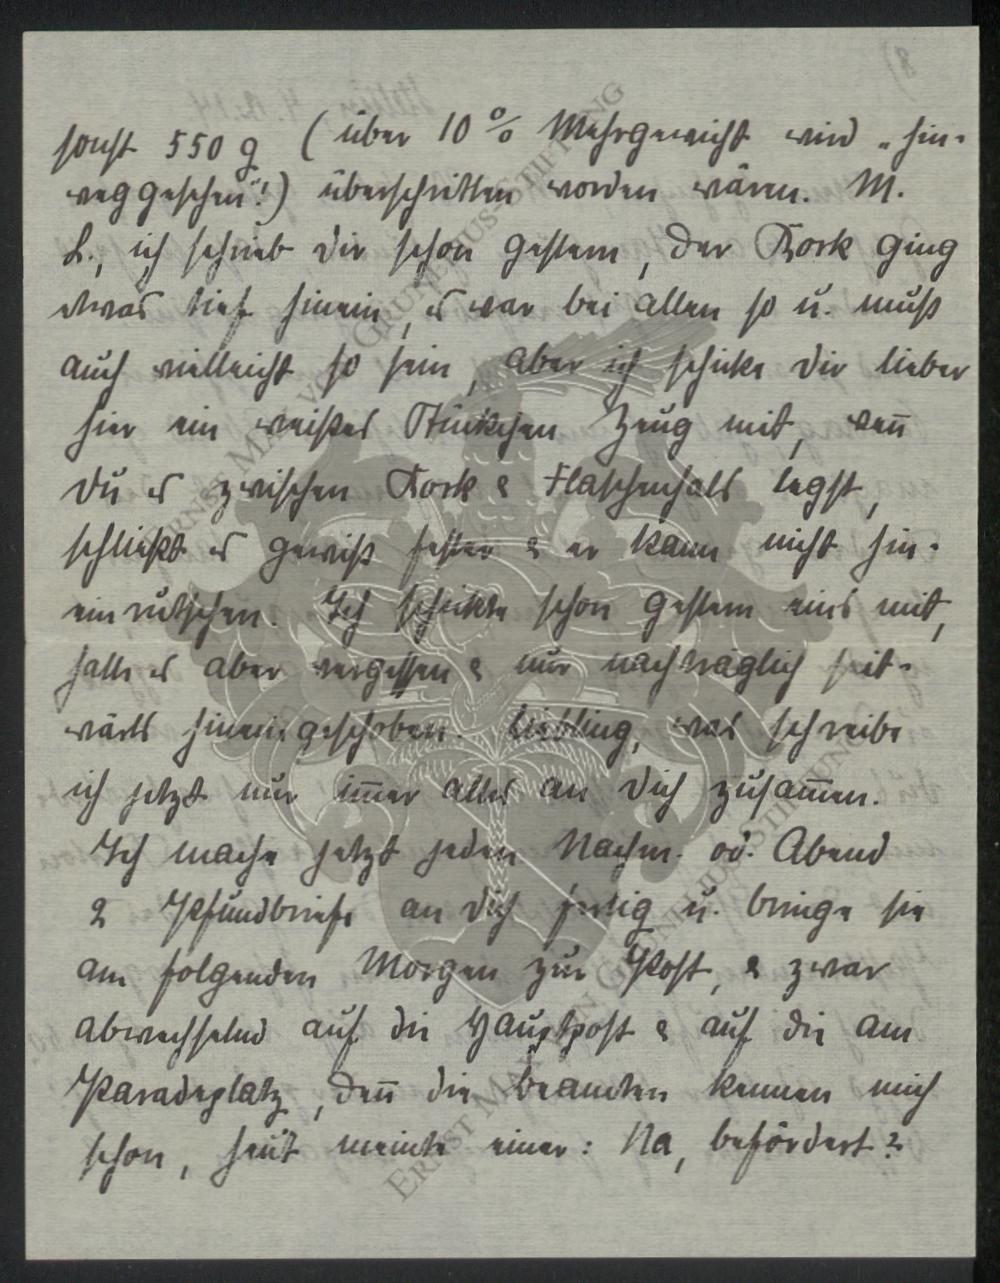 sonst 550 g (über 10 % Mehrgewicht wird „hin-
weggesehen“!) überschritten worden wären. M.
L., ich schrieb dir schon gestern, der Kork ging
etwas tief hinein, es war bei allen so u. muß
auch vielleicht so sein, aber ich schicke dir lieber
hier ein weißes Stückchen Zeug mit, weñ
du es zwischen Kork & Flaschenhals legst,
schließt es gewiß fester & er kann nicht hin-
ein rutschen. Ich schickte schon gestern eins mit,
hatte es aber vergessen & nur nachträglich seit-
wärts hineingeschoben. Liebling, was schreibe
ich jetzt nur im̃er alles an dich zusam̃en.
Ich mache jetzt jeden Nachm. od. Abend
2 Pfundbriefe an dich fertig u. bringe sie
am folgenden Morgen zur Post, & zwar
abwechselnd auf die Hauptpost & auf die am
Paradeplatz, deñ die Beamten kennen mich
schon, heut meinte einer: Na, befördert?
ERNST MAX VON GRUNELIUS-STIFTUNG
ERNST MAX VON GRUNELIUS-STIFTUNG